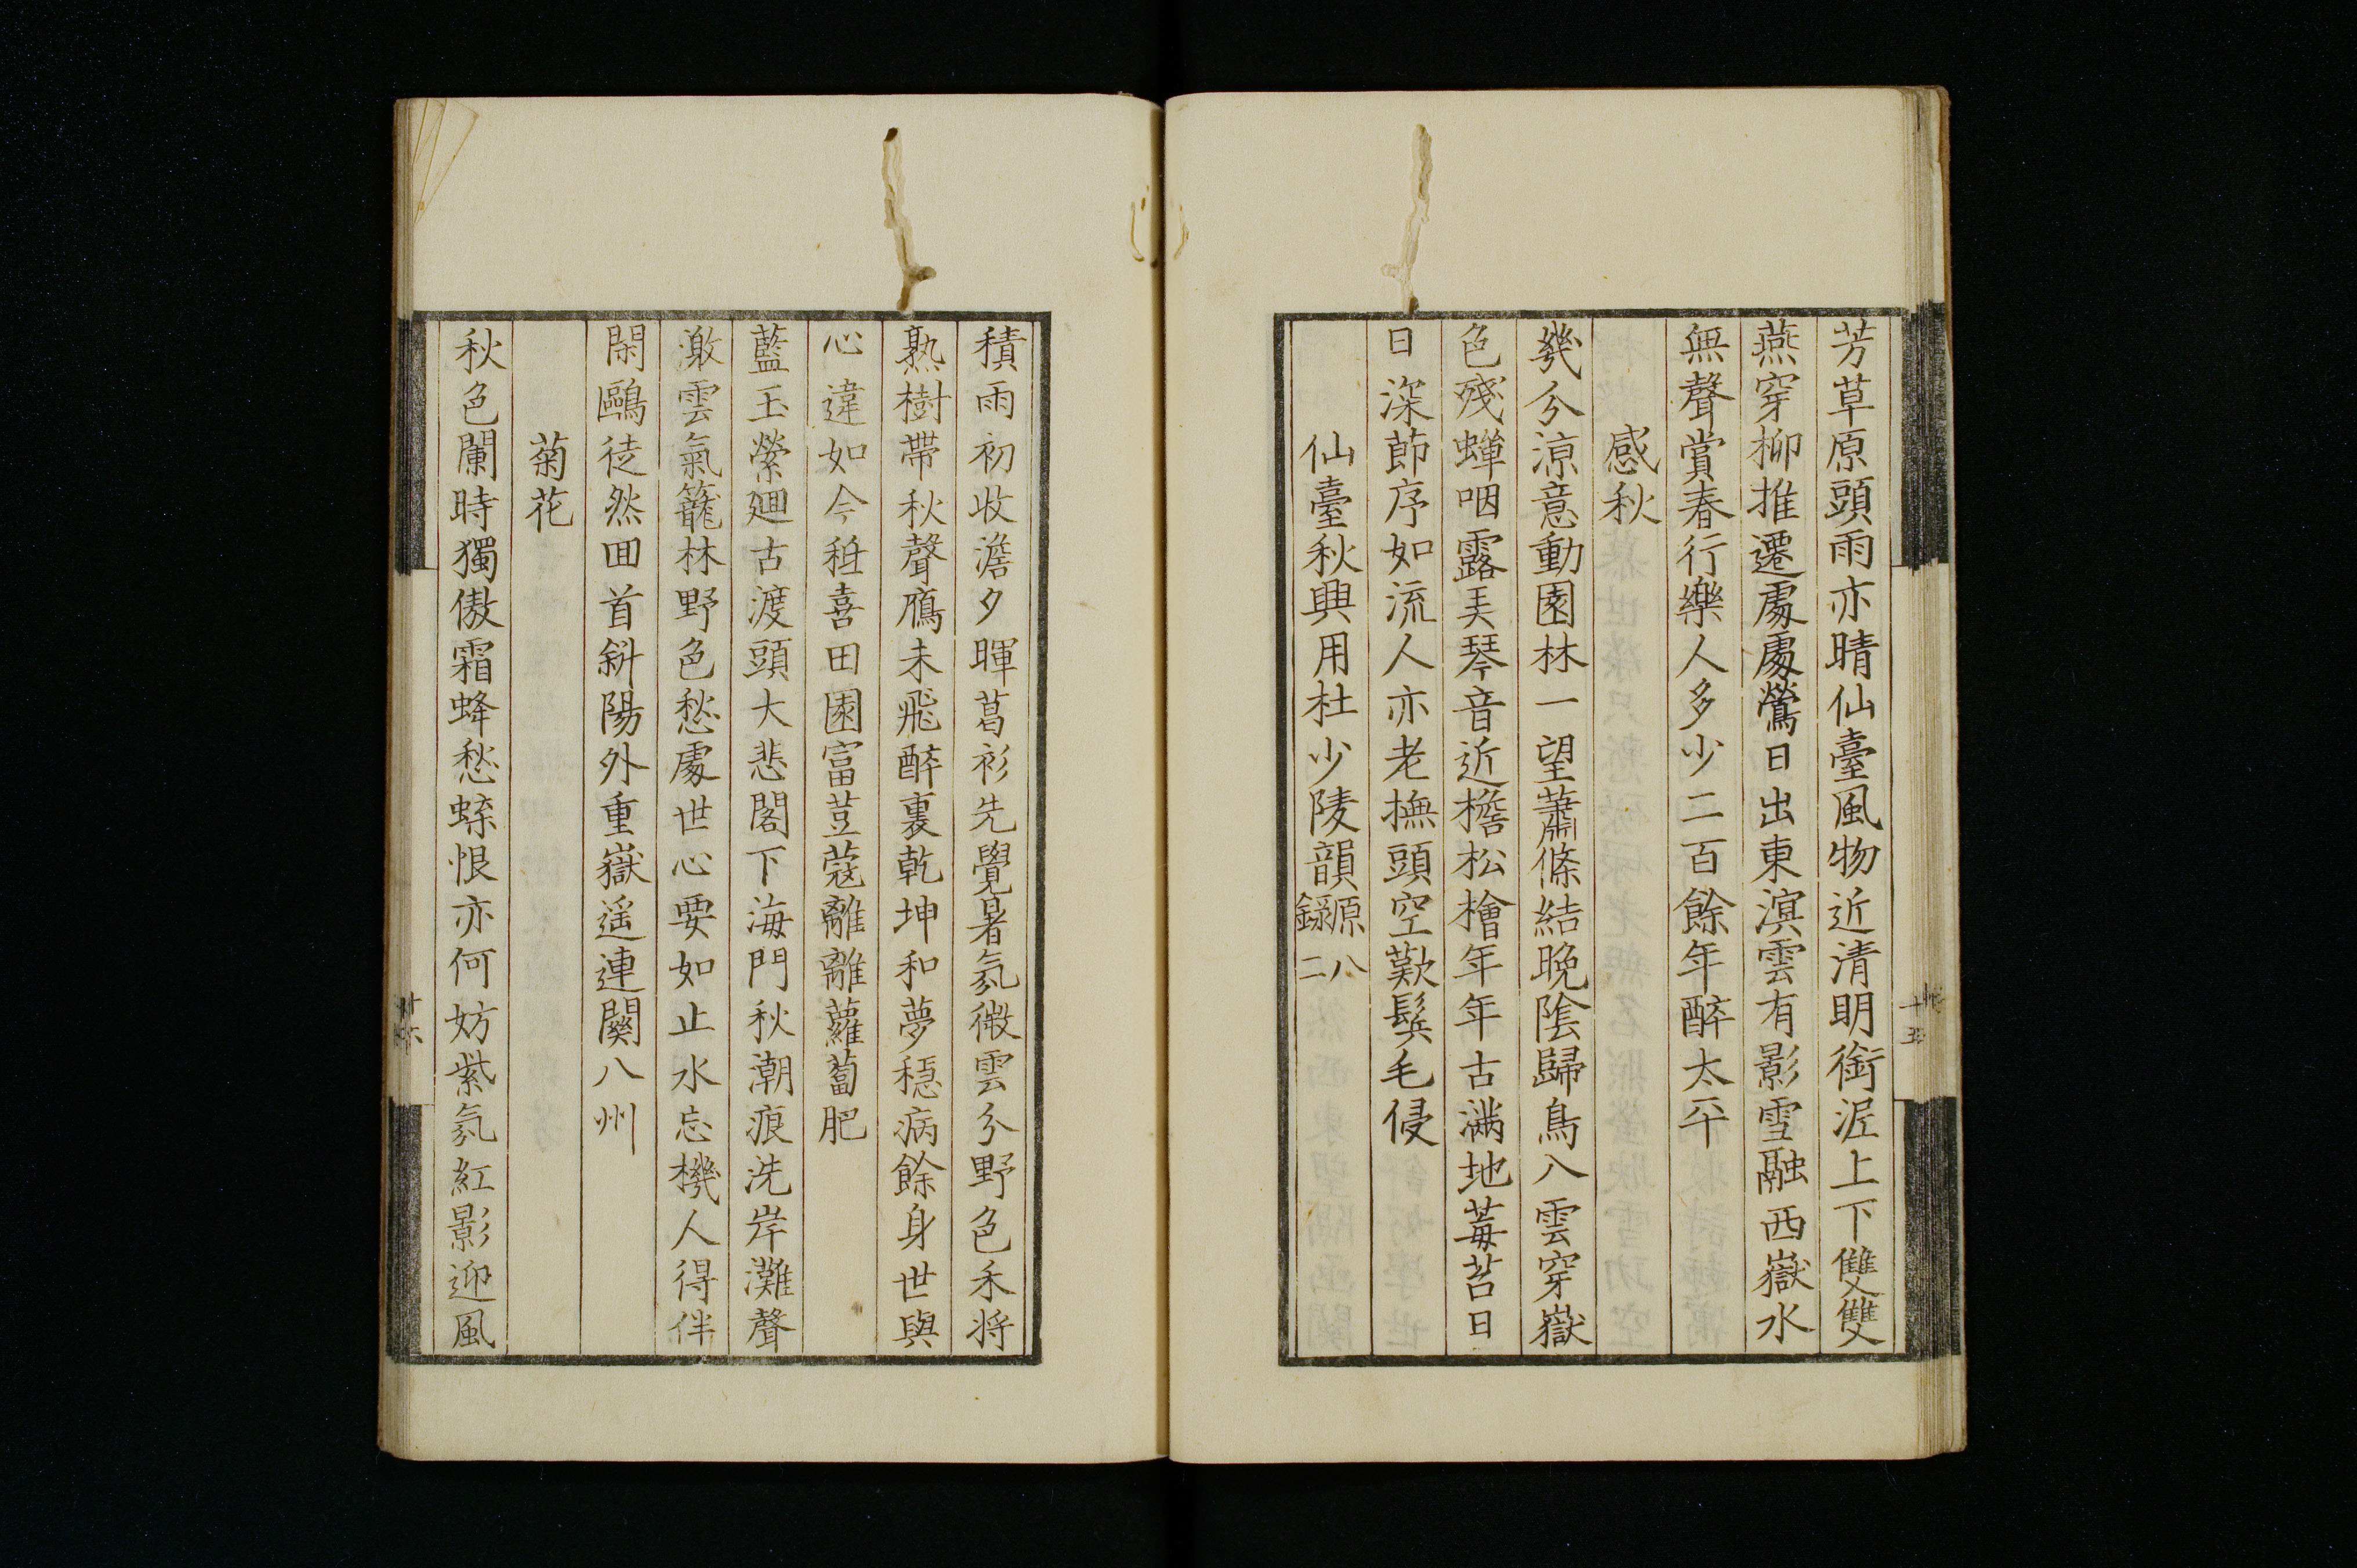 芳草原頭雨亦晴仙臺風物近清明銜泥上下雙雙
燕穿柳推遷處處鶯日出東溟雲有影雪融西嶽水
無聲賞春行樂人多少二百餘年醉太平
感秋
幾分涼意動園林一望蕭條結晩陰歸鳥入雲穿嶽
色殘蟬咽露美琴音近檐松檜年年古滿地莓苔日
日深節序如流人亦老撫頭空歎鬂毛侵
仙臺秋興用杜少陵韻原八
錄二
積雨初收澹夕暉葛衫先覺暑氛微雲分野色禾將
熟樹帶秋聲鴈未飛醉裏乾坤和夢穏病餘身世與
心違如今秪喜田園富荳蔻離離蘿蔔肥
藍玉縈廻古渡頭大悲閣下海門秋潮痕洗岸灘聲
激雲氣籠林野色愁處世心要如止水忘機人得伴
閑鷗徒然回首斜陽外重嶽遥連關八州
菊花
秋色闌時獨傲霜蜂愁蜨恨亦何妨紫氛紅影迎風
十五
十六